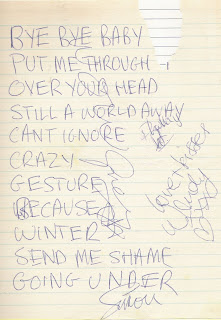 BYE BYE BABY
PUT ME THROUGH
OVER YOUR HEAD
STILL A WORLD AWAY
CANT IGNORE
CRAZY
GESTURE
BECAUSE
WINTER
SEND ME SHAME
GOING UNDER
love + kisses
Simon